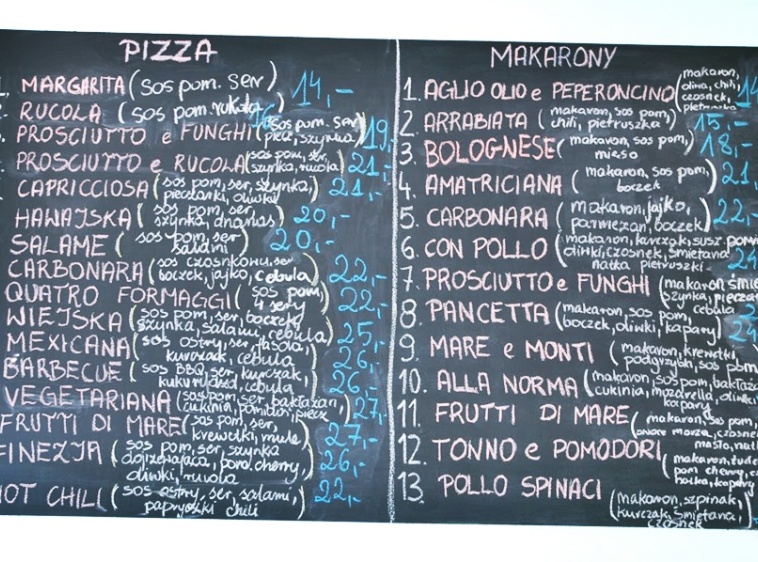 PIZZA
MARGARITA (sos pom. ser) 14,-
RUCOLA (sos pom. rukola)
PROSCIUTTO e FUNGHI (sos pom. ser, piecz, szynka) 19,
PROSCIUTTO e RUCOLA (sos pom, ser, szynka, rucola) 21,-
CAPRICCIOSA (sos pom, ser, szynka, pieczarki, oliwki) 21,-
HAWAJSKA (sos pom, ser, szynka, ananas) 20,-
SALAME (sos pom, ser salami) 20,-
CARBONARA (sos czosnkowy, ser boczek, jajko, cebula) 22,-
QUATRO FORMAGGI (sos pom, 4 sery) 22,-
WIEJSKA (sos pom, ser, boczek, szynka, salami, cebula) 25,-
MEXICANA (sos ostry, ser, fasola, kurczak, cebula) 26,-
BARBECUE (sos BBQ, ser, kurczak, kukurydza, cebula) 26,-
VEGETARIANA (sos pom, ser, bakłażan, cukinia, pomidor, piecz) 27,-
FRUTTI DI MARE (sos pom, ser, krewetki, mule) 27,-
FINEZJA (sos pom, ser, szynka dojrzewająca, pomd. cherry, oliwki, rucola) 26,-
HOT CHILI (sos ostry, ser, salami, papryczki chili) 22,-
MAKARONY
1. AGLIO OLIO e PEPERONCINO (makaron, oliwa, chili, czosnek, pietruszka) 14
2. ARRABIATA (makaron, sos pom, chili, pietruszka) 15,-
3. BOLOGNESE (makaron, sos pom, mięso) 18,-
4. AMATRICIANA (makaron, sos pom, boczek) 21,
5. CARBONARA (makaron, jajko, parmezan, boczek) 22,-
6. CON POLLO (makaron, kurczak, susz. pomi oliwki, czosnek, śmietana natka pietruszki 24
7. PROSCIUTTO e FUNGHI (makaron śmie szynka, pieczar cebula
8. PANCETTA (makaron, sos pom, boczek, oliwki, kapary) 24
9. MARE e MONTI (makaron, krewetki, podgrzybki, sos pom
10. ALLA NORMA (makaron, sos pom, bakłaża cukinia, mozarella, oliwki kapary
11. FRUTTI DI MARE (makaron, sos pom, owoce morza, czosne masło, nat
12. TONNO e POMODORI (makaron, tuńc pom cherry, natka, kapary
13. POLLO SPINACI (makaron, szpinak, kurczak, śmietana, czosnek